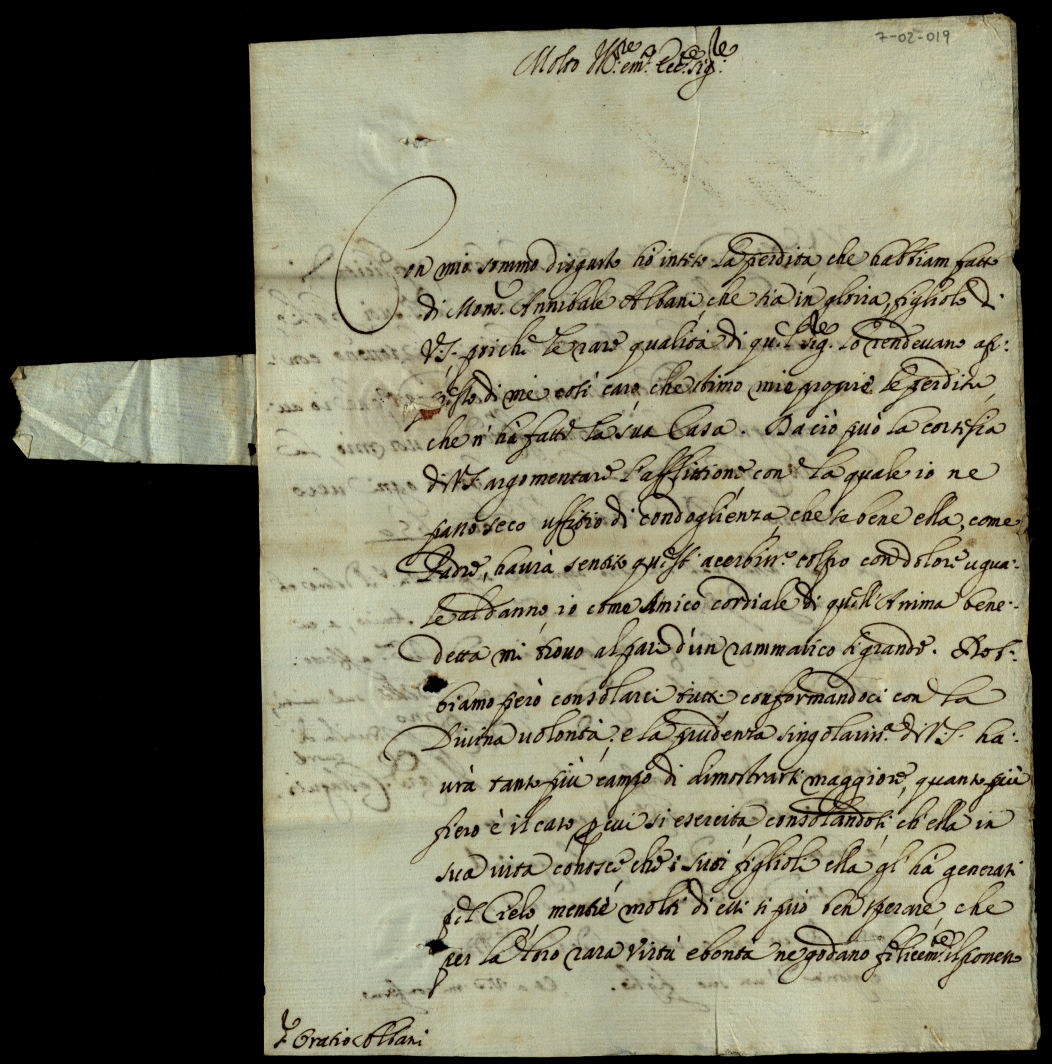 7-02-019
Molto Ill:re em:o Ecc:te Sig:re
Con mio sommo disgusto hò inteso la perdita che habbiam fatto
di Mons.r Annibale Albani, che sia in gloria, figliolo di
V.S. poiche le rare qualità di quel Sig.re lo rendevano ap:
presso di me così caro che stimo mie proprie le perdite
che n'hà fatte la sua Casa. Da ciò può la cortesia
di V.S. argomentare l'afflittione con la quale io ne
passo seco uffitio di condoglienza, che se bene ella, come
Padre, haurà sentito quest' acerbiss.o colpo con dolore ugua:
le al danno, io come Amico cordiale di quell'Anima bene:
detta mi trovo al pari d'un rammarico sì grande. Dob:
biamo però consolarci tutti conformandoci con la
Divina volontà: e la prudenza singolariss.a di V.S. ha:
urà tanto più campo di dimostrarsi maggiore, quanto più
fiero è il caso p cui si esercita consolandosi ch'ella in
sua vita conosce che i suoi figlioli ella gl'hà generati
p il Cielo mentre molti di essi si può ben sperare, che
per la loro rara virtù e bontà ne godano felicem.te il possesso
S.r Oratio Albani